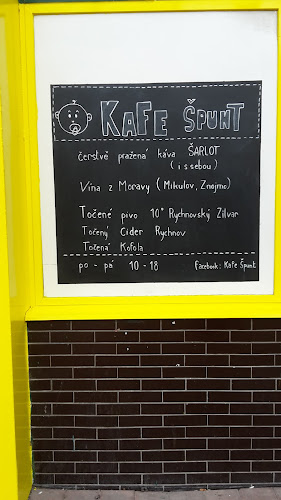 KAFE ŠPUNT
čerstvě pražená káva ŠARLOT
(i s sebou)
Vína z Moravy (Mikulov, Znojmo)
Točené pivo 10° Rychnovský Zilvar
Točený Cider Rychnov
Točená Kofola
po - pá 10 - 18 facebook: Kafe Špunt